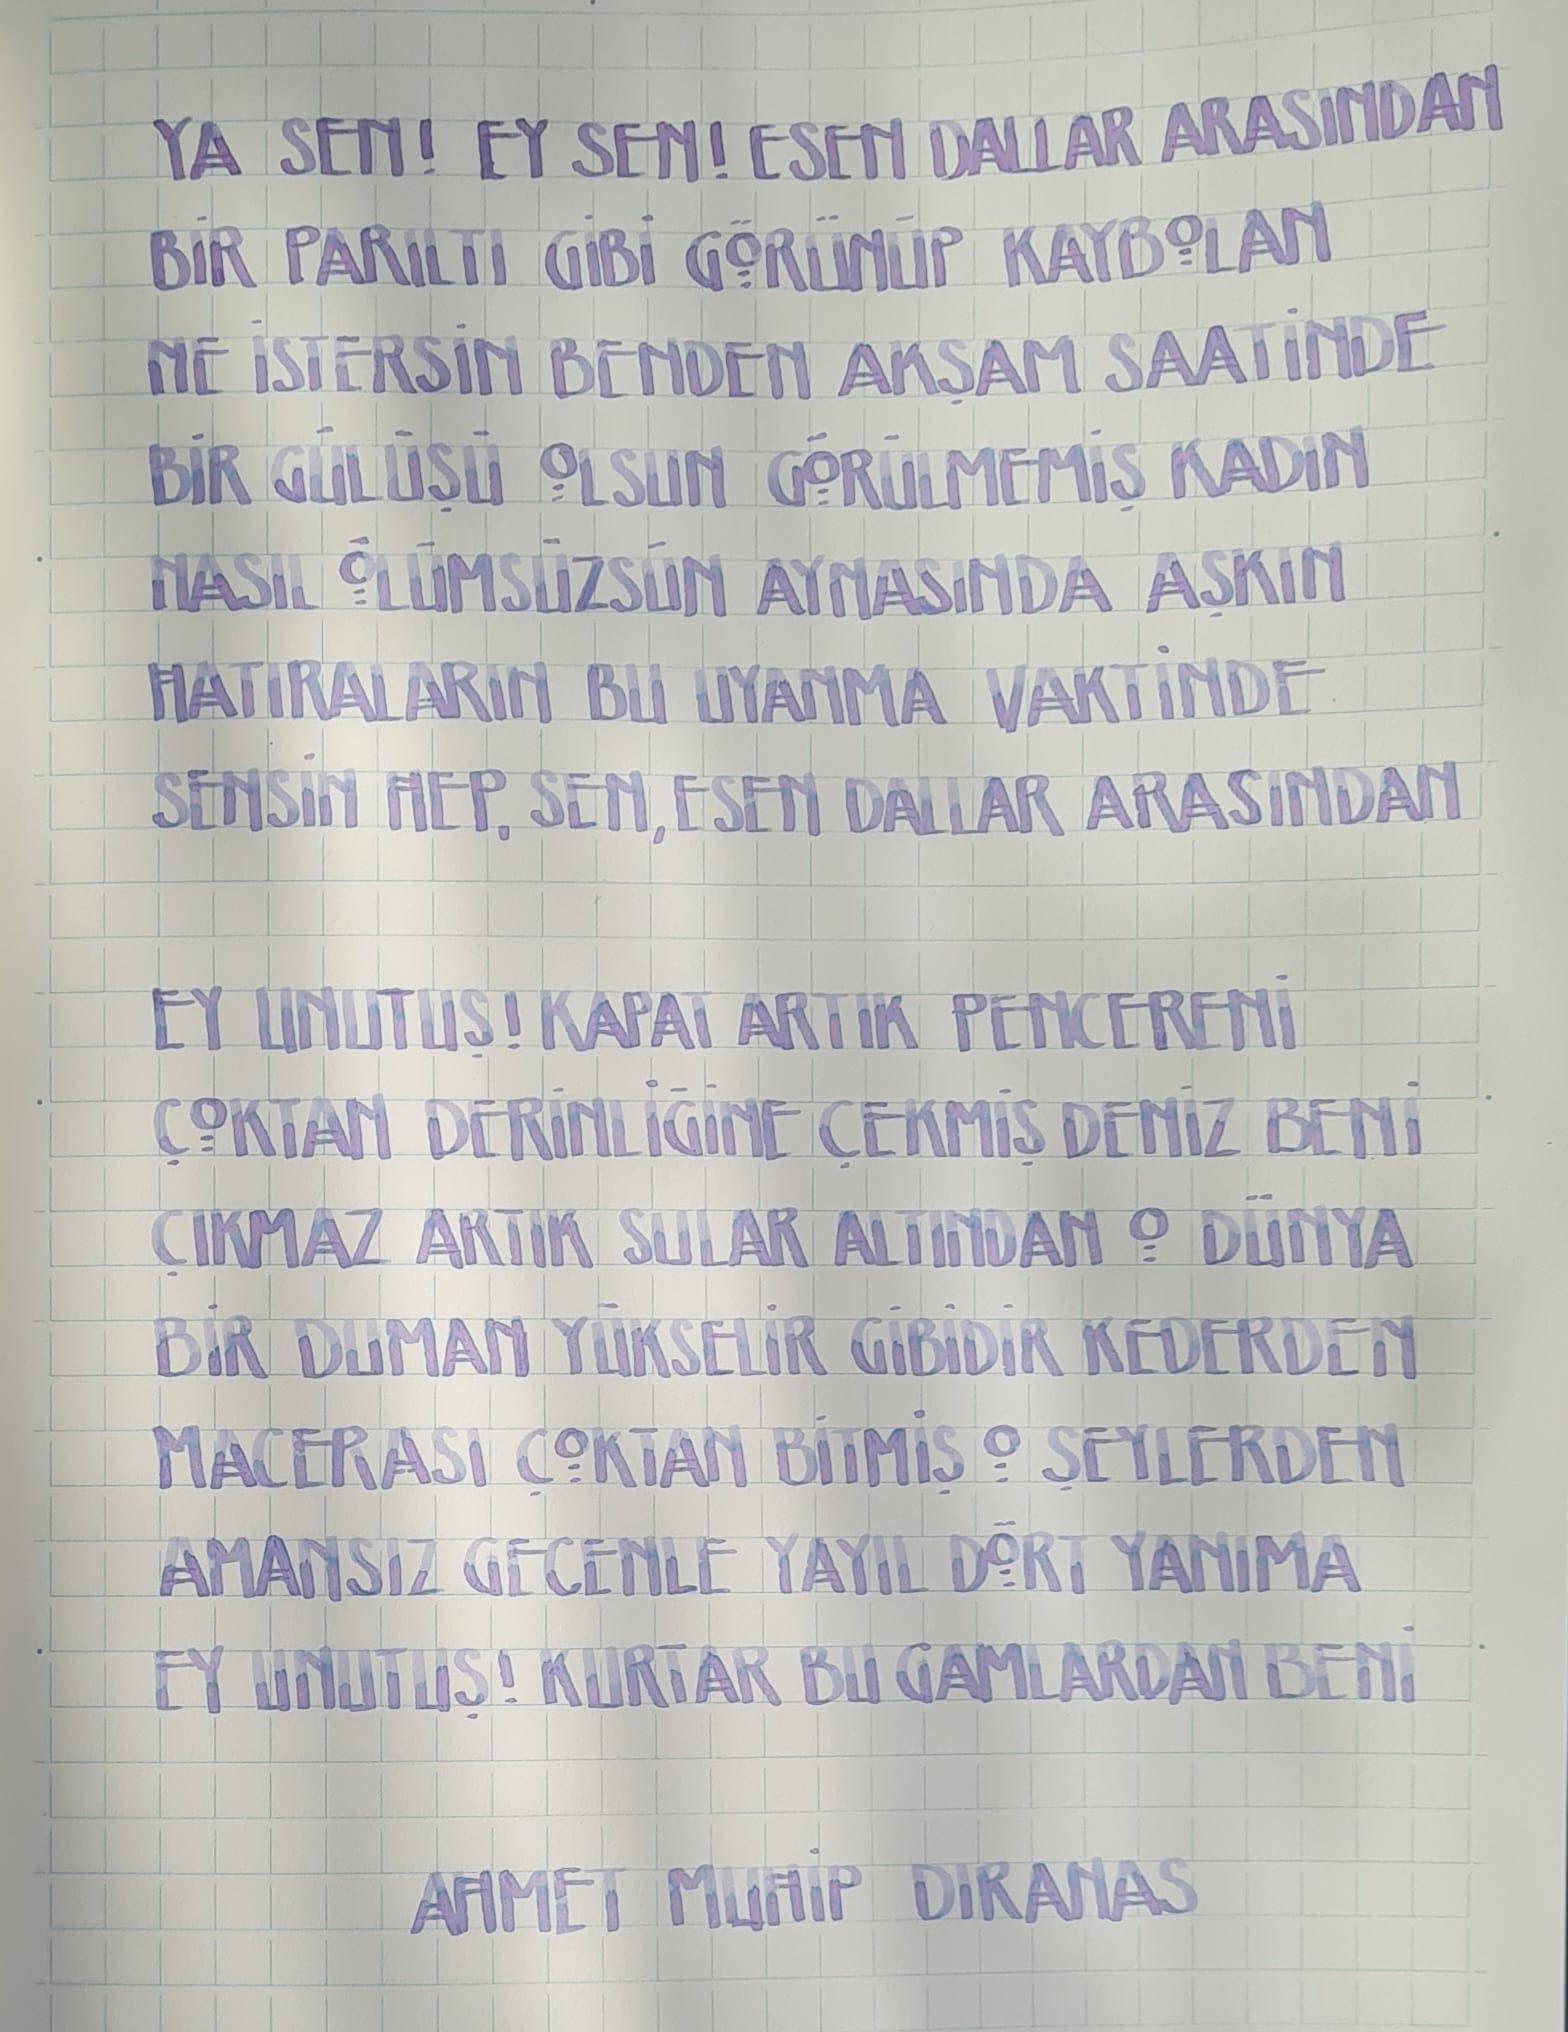 YA SEN! EY SEN! ESEN DALLAR ARASINDAN
BİR PARILTI GİBİ GÖRÜNÜP KAYBOLAN
NE İSTERSİN BENDEN AKŞAM SAATİNDE
BİR GÜLÜŞÜ OLSUN GÖRÜLMEMİŞ KADIN
NASIL ÖLÜMSÜZSÜN AYNASINDA AŞKIN
HATIRALARIN BU UYANMA VAKTİNDE
SENSİN HEP, SEN, ESEN DALLAR ARASINDAN
EY UNUTUŞ! KAPAT ARTIK PENCERENİ
ÇOKTAN DERİNLİĞİNE ÇEKMİŞ DENİZ BENİ
ÇIKMAZ ARTIK SULAR ALTINDAN O DÜNYA
BİR DUMAN YÜKSELİR GİBİDİR KEDERDEN
MACERASI ÇOKTAN BİTMİŞ O ŞEYLERDEN
AMANSIZ GECENLE YAYIL DÖRT YANIMA
EY UNUTUŞ! KURTAR BU GAMLARDAN BENİ
AHMET MUHİP DIRANAS